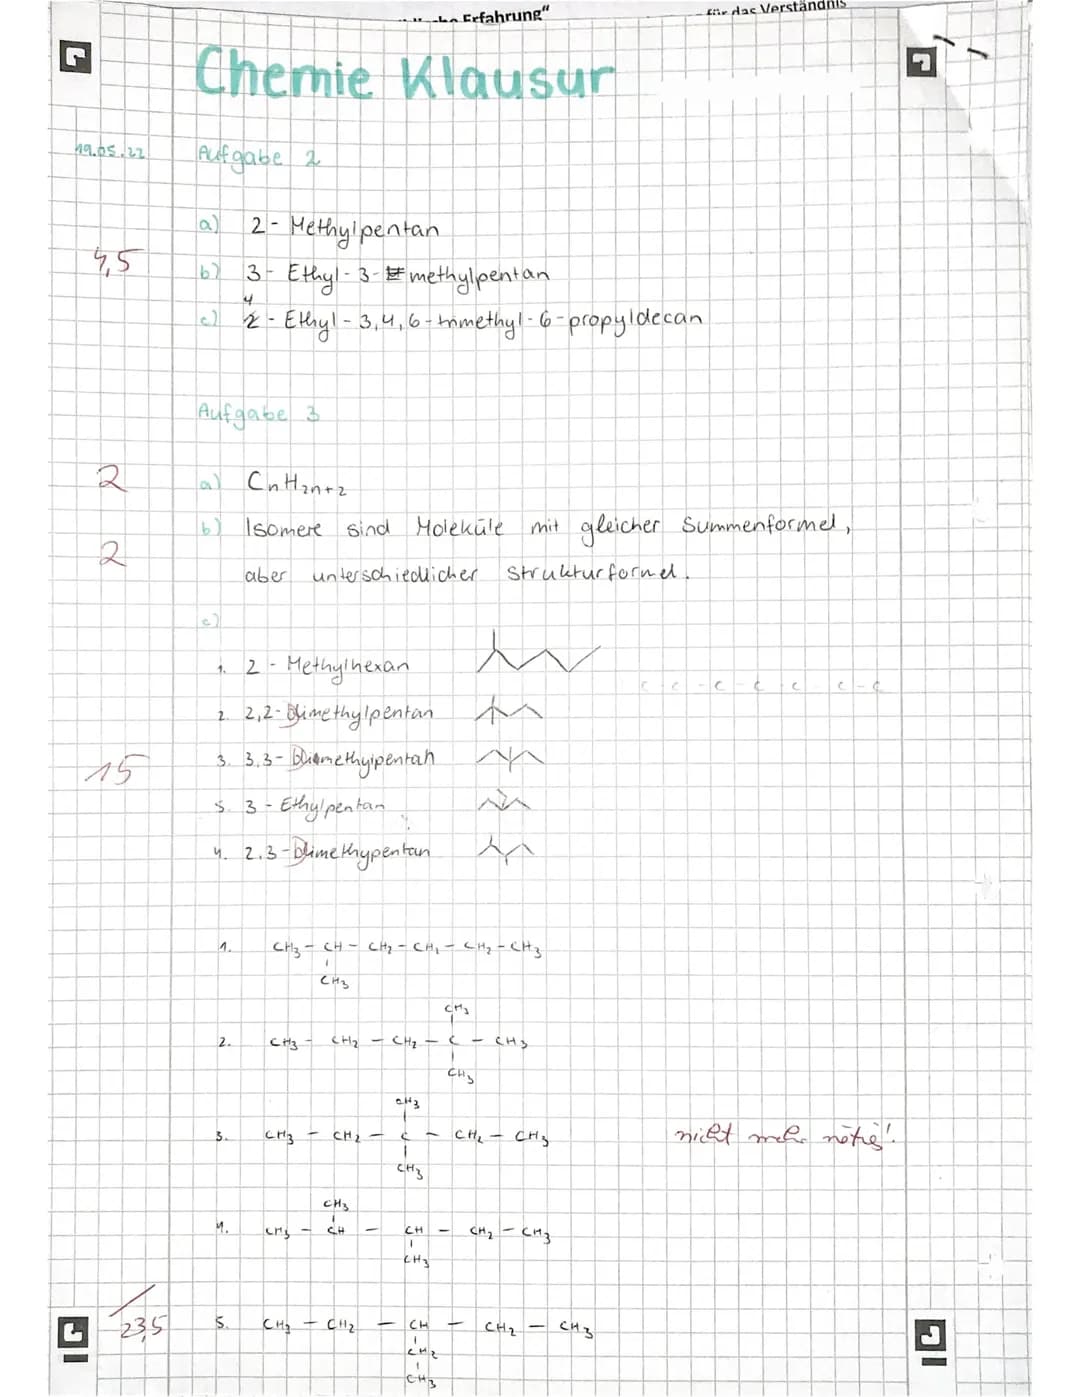 Erfahrung"
für das Verständnis
Chemie Klausur
19.05.22
Aufgabe 2
a) 2 - Methylpentan
4,5
b) 3 - Ethyl - 3 - methylpentan
c) 4 - Ethyl - 3,4,6 - trimethyl - 6 - propyldecan
Aufgabe 3
2
a) CnH2n+2
b) Isomere sind Moleküle mit gleicher Summenformel,
2
aber unterschiedlicher Strukturformel.
c)
1. 2 - Methylhexan
C - C - C - C - C C - C
2. 2,2 - Dimethylpentan
3. 3,3 - Dimethylpentan
15
5. 3 - Ethylpentan
4. 2.3 - Dimethypentan
1. CH3 - CH - CH2 - CH2 - CH2 - CH3
CH3
CH3
2. CH3 - CH2 - CH2 - C - CH3
CH3
CH3
3. CH3 - CH2 - C - CH2 - CH3
nicht mehr nötig!
CH3
CH3
4. CH3 - CH - CH - CH2 - CH3
CH3
23,5
5. CH3 - CH2 - CH - CH2 - CH3
CH2
CH3